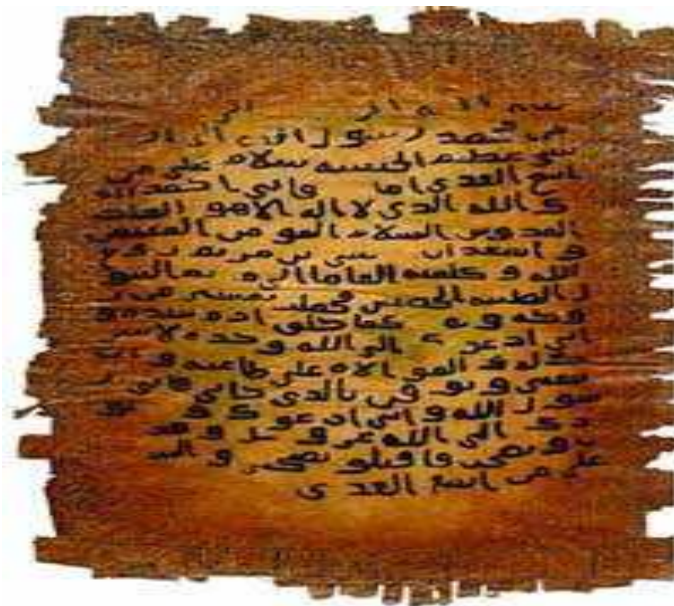 بسم الله الر الر
من محمد رسول الله الى ال
شى عظيم الحبشة سلام على من
اتبع الهدى اما فانى احمد الي
ك الله الذى لا اله الا هو الملك
القدوس السلام المومن المهيمن
و اشهد ان سى بن مريم رو ح
الله و كلمته القاها الى مريم البتو
ل الطيبة الحصينة فحملت بعيسى من ر
وحه و كما خلق ادم بيده و
انى ادعوك الى الله وحده لا شر
يك له و الموالاة على طاعته و ان
تتبعنى و تو قن بالذى جانى فانى ر
سول الله و انى ادعوك و جنو
دك الى الله عز و جل و قد
ت و نصحت فاقبلو نصيحتى و السلم
على من اتبع الهدى